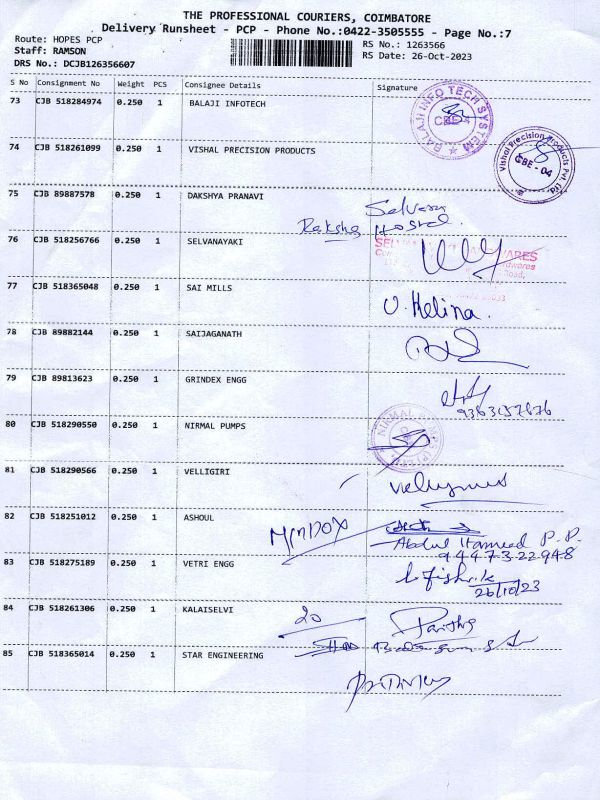 THE PROFESSIONAL COURIERS, COIMBATORE
Delivery Runsheet - PCP - Phone No.:0422-3505555 - Page No.:7
Route: HOPES PCP
RS No.: 1263566
Staff: RAMSON
RS Date: 26-Oct-2023
DRS No.: DCJB126356607
S No Consignment No Weight PCS Consignee Details Signature
73 CJB 518284974 0.250 1 BALAJI INFOTECH
BALAJI INFO TECH SYSTEM
CBE-4
74 CJB 518261099 0.250 1 VISHAL PRECISION PRODUCTS
Vishal Precision Products Pvt Ltd
CBE - 04
75 CJB 89887578 0.250 1 DAKSHYA PRANAVI
Hostel
76 CJB 518256766 0.250 1 SELVANAYAKI
77 CJB 518365048 0.250 1 SAI MILLS
U. Helina
78 CJB 89882144 0.250 1 SAIJAGANATH
79 CJB 89813623 0.250 1 GRINDEX ENGG
9363157676
80 CJB 518290550 0.250 1 NIRMAL PUMPS
NIRMAL
81 CJB 518290566 0.250 1 VELLIGIRI
82 CJB 518251012 0.250 1 ASHOUL
Abdul Hameed P.P.
94473-22948
83 CJB 518275189 0.250 1 VETRI ENGG
26/10/23
84 CJB 518261306 0.250 1 KALAISELVI
20
85 CJB 518365014 0.250 1 STAR ENGINEERING